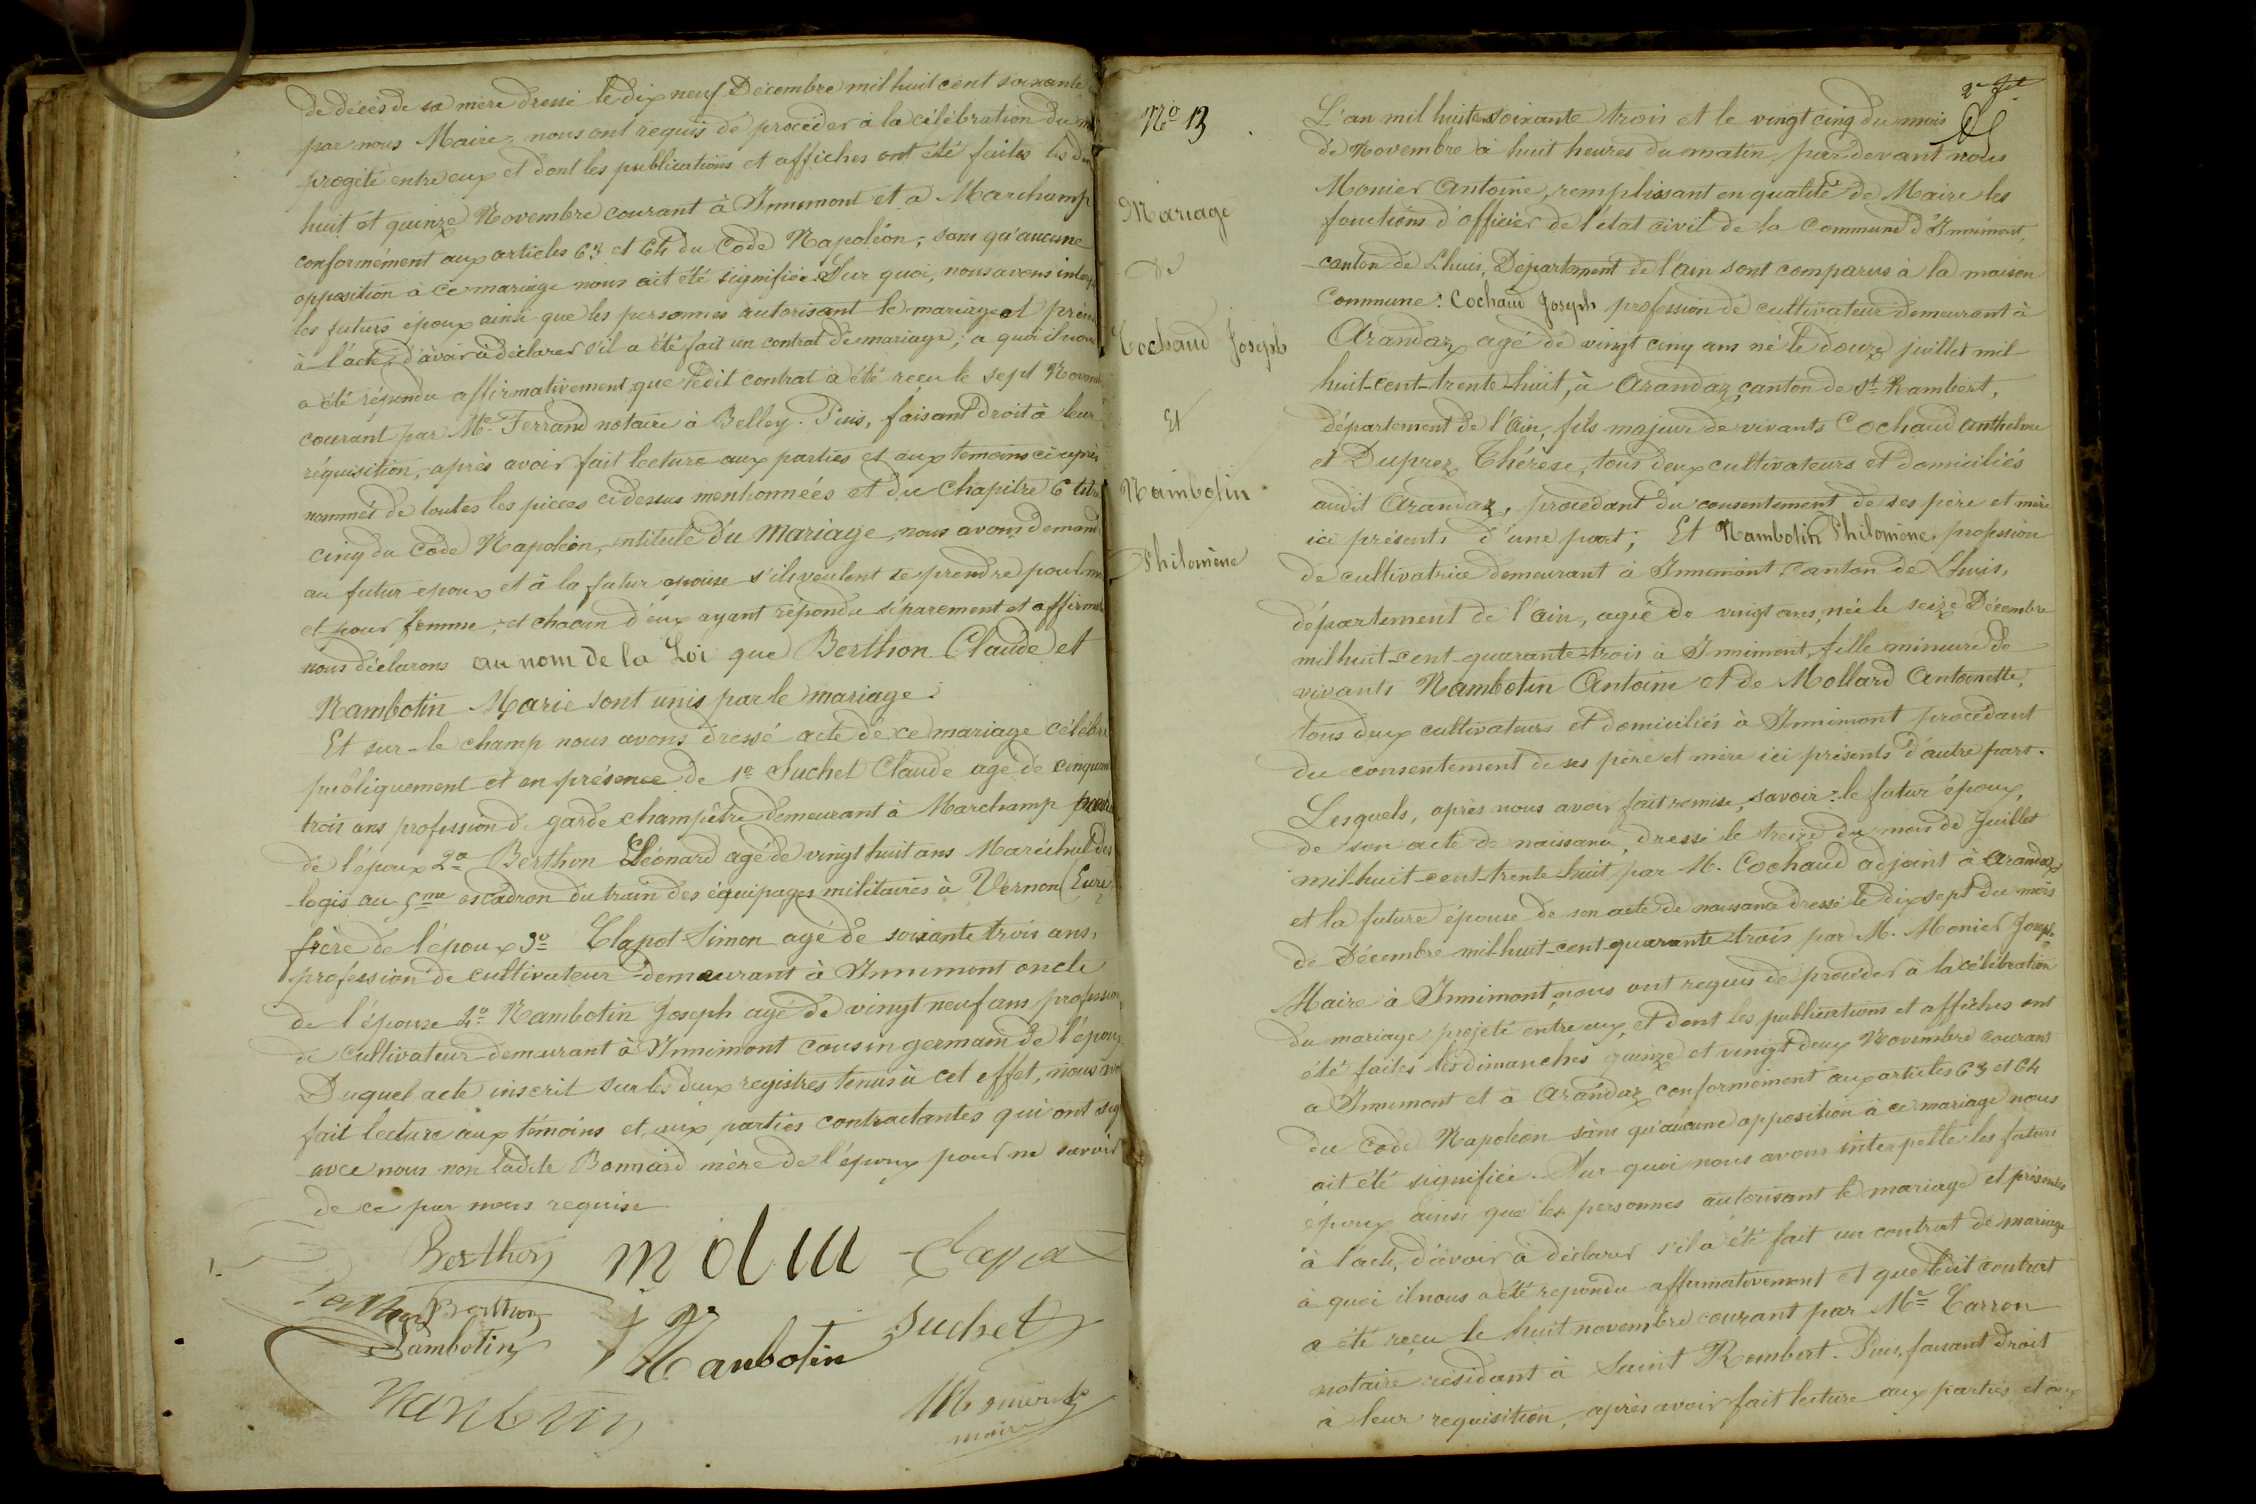 de décès de sa mère dressé le dix neuf Décembre mil huit cent soixante
par nous Maire, nous ont requis de procéder à la célébration du
progété entre eux et dont les publications et affiches ont été faites les
huit et quinze Novembre courant à Innimont et a Marchamp
conformément aux articles 63 et 64 du Code Napoléon, sans qu'aucune
opposition à ce mariage nous ait été signifiée. Sur quoi, nous avons
les futurs époux ainsi que les personnes autorisant le mariage et
à l'acte, d'avoir à déclarer s'il a été fait un contrat de mariage, a quoi il nous
a été répondu affirmativement, que ledit contrat a été reçu le sept
courant par Me. Ferrand notaire à Belley. Puis, faisant droit à leur
réquisition, après avoir fait lecture aux parties et aux témoins ci après
nommés de toutes les pièces ci dessus mentionnées et du Chapitre 6 titre
cinq du Code Napoléon, intitulé Du Mariage, nous avons
au futur epoux et à la futur epouse s'ils veulent se prendre pour
et pour femme; et chacun d'eux ayant répondu séparement et
nous déclarons au nom de la Loi que Berthon Claude et
Nambotin Marie sont unis par le mariage.
Et sur-le champ nous avons dressé acte de ce mariage célébré
publiquement et en présence de 1o Suchet Claude agé de
trois ans profession de garde champêtre demeurant à Marchamp
de l'époux 2o Berthon Léonard agé de vingt huit ans Maréchal des
logis au 5me escadron du train des équipages militaires à Vernon (Eure)
frère de l'époux 3o Clapot Simon agé de soixante trois ans,
profession de cultivateur demeurant à Innimont oncle
de l'épouse 4o Nambotin Joseph agé de vingt neuf ans profession
de Cultivateur demeurant à Innimont cousin germain de l'épouse
Duquel acte inscrit sur les deux registres tenus à cet effet, nous
fait lecture aux témoins et aux parties contractantes qui ont
avec nous non ladite Bonnard mère de l'époux pour ne savoir
de ce par nous requise
Berthon
Berthon
Nambotin
Nambotin
Suchet
Monier
maire
No 13
Mariage
de
Cochaud Joseph
Et
Nambotin
Philomène
L'an mil huit soixante trois et le vingt cinq du mois
de Novembre à huit heures du matin, par devant nous
Monier Antoine, remplissant en qualité de Maire les
fonctions d'officier de l'état civil de la Commune d'Innimont,
canton de Lhuis, Département de l'ain sont comparus à la maison
Commune: Cochaud Joseph profession de cultivateur demeurant à
Arandaz agé de vingt cinq ans né le douze juillet mil
huit-cent-trente-huit, à Arandaz, canton de St. Rambert,
département de l'Ain, fils majeur de vivants Cochaud Anthelme
et Duprez Thérèse, tous deux cultivateurs et domiciliés
audit Arandaz, procédant du consentement de ses père et mère
ici présents d'une part; Et Nambotin Philomène, profession
de cultivatrice demeurant à Innimont canton de Lhuis,
département de l'ain, agée de vingt ans, née le seize Décembre
mil huit-cent-quarante-trois à Innimont, fille mineure de
vivants Nambotin Antoine et de Mollard Antoinette,
tous deux cultivateurs et domiciliés à Innimont procédant
du consentement de ses père et mère ici présents d'autre part.
Lesquels, après nous avoir fait remise, savoir: le futur époux,
de son acte de naissance, dressé le treize du mois de Juillet
mil-huit-cent-trente-huit par M. Cochaud adjoint à Arandaz
et la future épouse de son acte de naissance dressé le dix sept du mois
de Décembre mil-huit-cent-quarante-trois par M. Monier Joseph
Maire à Innimont, nous ont requis de procéder à la célébration
du mariage projeté entre eux, et dont les publications et affiches ont
été faites les dimanches quinze et vingt deux Novembre courant
a Innimont et à Arandaz conformément aux articles 63 et 64
du Code Napoléon sans qu'aucune opposition à ce mariage nous
ait été signifiée. Sur quoi nous avons interpellé les futurs
époux ainsi que les personnes autorisant le mariage et présentes
à l'acte, d'avoir à déclarer s'il a été fait un contrat de mariage
à quoi il nous a été répondu affirmativement et que ledit contrat
a été reçu le huit novembre courant par Me Carron
notaire résidant à Saint Rembert. Puis, faisant droit
à leur requisition, après avoir fait lecture aux parties et aux